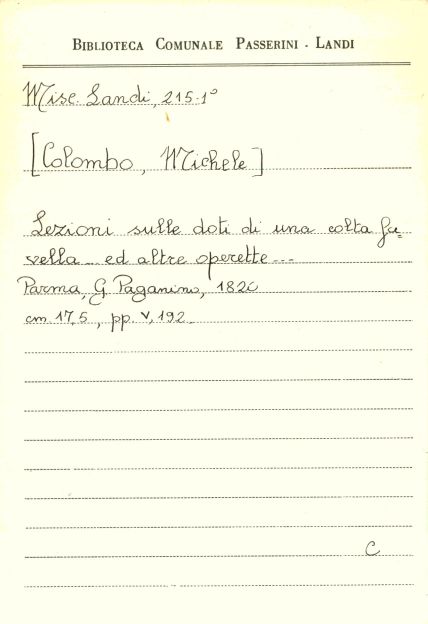 BIBLIOTECA COMUNALE PASSERINI - LANDI
Misc. Landi, 215-1°
[Colombo, Michele]
Lezioni sulle doti di una colta fa=
vella... ed altre operette...
Parma, G. Paganino, 1820
cm 17,5, pp. V, 192
C